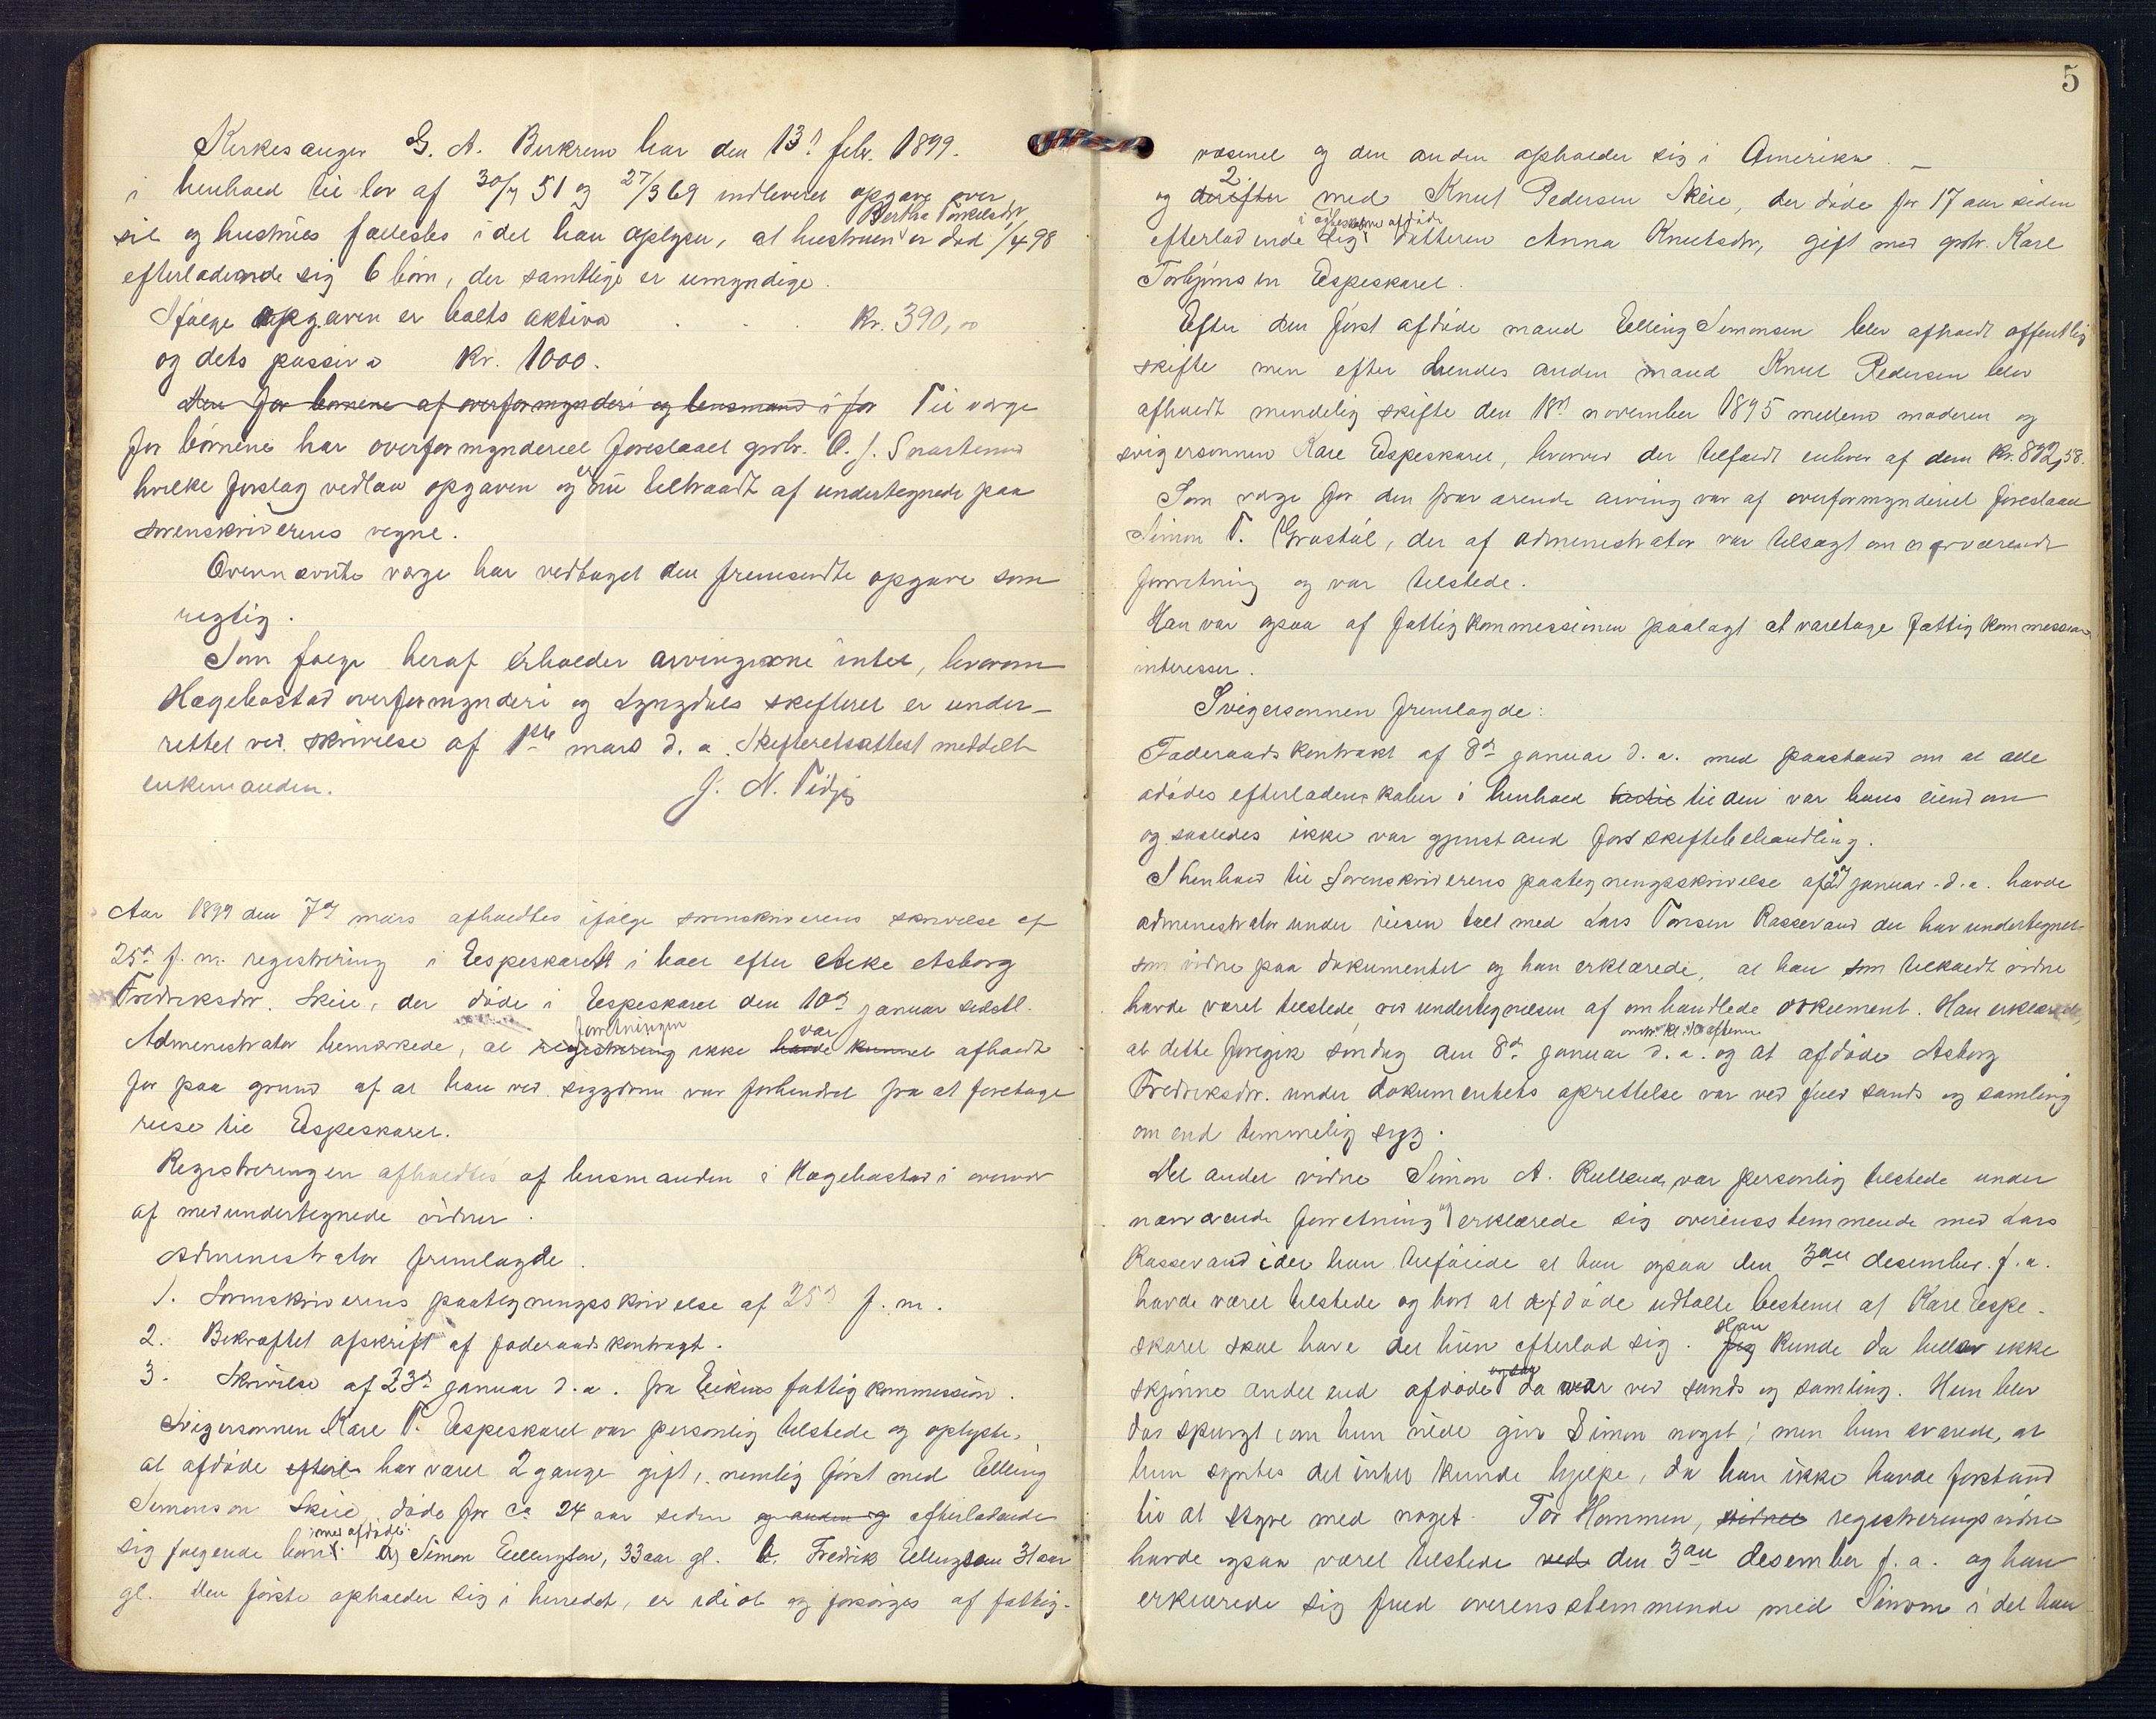 Kirkesanger G. A. Birkrem har den 13d febr. 1899.
i henhold til lov af 30/7 51 og 27/3 69 indleveret opgave over
sit og hustrues fællesbo idet han oplyser, at hustruen Bertha Torkelsdtr. er död 1/4 98
efterladende sig 6 börn, der samtlige er umyndige.
Ifölge opgaven er boets aktiva . . . Kr. 390,00
og dets passiva Kr. 1000.
Men for bornene af overformynderi og lensmand i for Til verge
for börnene har overformynderiet foreslaaet grbr. O. J. Snartemo
hvilke forslag vedlaa opgaven og er nu tiltraadt af undertegnede paa
sorenskriverens vegne.
Ovennævnte verge har vedtaget den fremsendte opgave som
rigtig.
Som fölge heraf erholder arvingerne intet, hvorom
Hægebostad overformynderi og Lyngdals skifteret er under-
rettet ved skrivelse af 1ste mars d. a. Skifteretsattest meddelt
enkemanden. J. N. Tidjs
Aar 1899 den 7d mars afholdtes ifölge sorenskriverens skrivelse af
25d f. m. registrering i Eespeskaret i boet efter enke Asborg
Fredriksdtr. Skeie, der döde i Eespeskaret den 10d januar sidstl.
Administrator bemærkede, at registrering forretningen ikke havde kunnet var afholdt
för paa grund af at han ved sygdom var forhindret fra at foretage
reise til Eespeskaret.
Registreringen afholdtes af lensmanden i Hægebostad i overvær
af medundertegnede vidner.
Administrator fremlagde.
1. Sorenskriverens paategningsskrivelse af 25d f. m.
2. Bekræftet afskrift af föderaadskontragt.
3. Skrivelse af 23d januar d. a. fra Eikens fattigkommission.
Svigersonnen Karl T. Eespeskaret var personlig tilstede og oplyste,
at afdöde efterl har været 2 gange gift, nemlig först med Elling
Simonson Skeie, döde for ca 24 aar siden og anden og efterladende
sig fölgende börn med afdöde: a) Simon Ellingsen, 33 aar gl. b. Fredrik Ellingsen 31 aar
gl. Den förste opholder sig i herredet, er idiot og forsörges af fattig-
5
væsenet og den anden opholder sig i Amerika. —
og derefter 2. med Knut Pedersen Skeie, der döde for 17 aar siden
efterladende sig i ægteskabene afdöde datteren Anna Knutsdtr, gift med grbr. Karl
Torbjörnsen Eespeskaret.
Efter den först afdöde mand Elling Simonsen blev afholdt offentlig
skifte men efter hendes anden mand Knut Pedersen blev
afholdt mindelig skifte den 18d november 1895 mellem moderen og
svigersonnen Karl Eespeskaret, hvorved der tilfaldt enhver af dem Kr. 892,58.
Som verge for den fraværende arving var af overformynderiet foreslaaet
Simon T. Grostöl, der af administrator var tilsagt om nærværende
forretning og var tilstede.
Han var ogsaa af fattigkommissionen paalagt at varetage fattigkommissions
interesser.
Svigersonnen fremlagde:
Föderaadskontrakt af 8d januar d. a. med paastand om at alle
afdödes efterladenskaber i henhold til den var hans eiendom
og saaledes ikke var gjenstand for skiftebehandling.
I henhold til Sorenskriverens paategningsskrivelse af 27d januar d. a. havde
administrator under reisen talt med Lars Tonsen Rossevand der har undertegnet
som vidne paa dokumentet og han erklærede, at han som tilkaldt vidne
havde været tilstede ved undertegnelsen af omhandlede dokument. Han erklærede,
at dette foregik söndag den 8d januar d. a. omtr. kl. 10 aftenen og at afdöde Asborg
Fredriksdtr. under dokumentets oprettelse var ved fuld sands og samling
om end temmelig syg.
Det andet vidne Simon A. Kulland, var personlig tilstede under
nærværende forretning og erklærede sig overensstemmende med Lars
Rossevand idet han tilföiede at han ogsaa den 3die desember f. a.
havde været tilstede og hört at afdöde udtalte bestemt at Karl Eespe-
skaret skal have det hun efterlod sig. Jeg Han kunde da heller ikke
skjönne andet end afdöde ogsaa da var ved sands og samling. Hun blev
da spurgt om hun vilde give Simon noget; men hun svarede, at
hun syntes det intet kunde hjelpe, da han ikke havde forstand
til at styre med noget. Tor Hommen, vidnet registreringsvidne
havde ogsaa været tilstede ved den 3die desember f. a. og han
erklærede sig fuld overensstemmende med Simon idet han